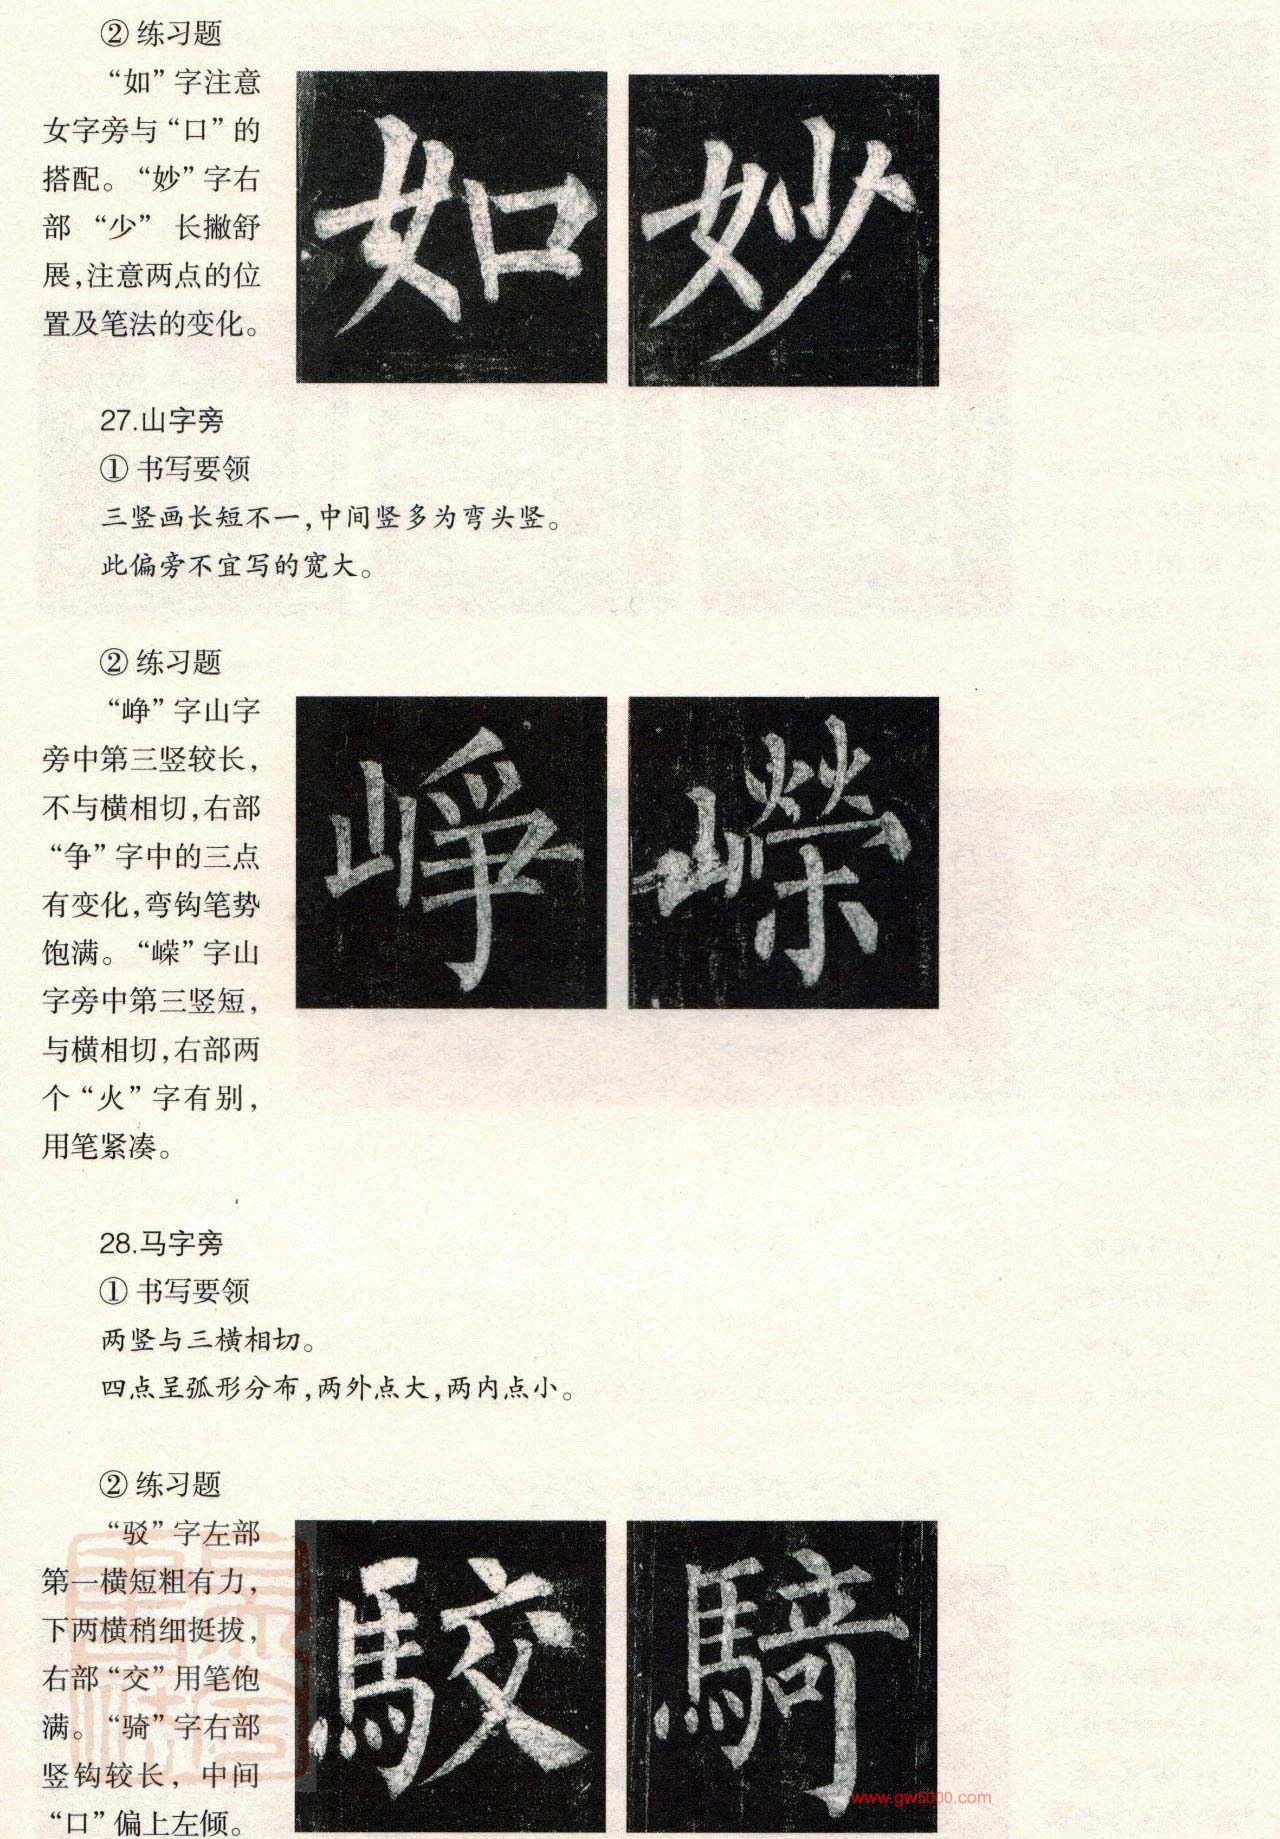 ② 练习题
“如”字注意
女字旁与“口”的
搭配。“妙”字右
部“少”长撇舒
展,注意两点的位
置及笔法的变化。
如 妙
27.山字旁
① 书写要领
三竖画长短不一,中间竖多为弯头竖。
此偏旁不宜写的宽大。
② 练习题
“峥”字山字
旁中第三竖较长,
不与横相切,右部
“争”字中的三点
有变化,弯钩笔势
饱满。“嵘”字山
字旁中第三竖短,
与横相切,右部两
个“火”字有别,
用笔紧凑。
崢 嶸
28.马字旁
① 书写要领
两竖与三横相切。
四点呈弧形分布,两外点大,两内点小。
② 练习题
“驳”字左部
第一横短粗有力,
下两横稍细挺拔,
右部“交”用笔饱
满。“骑”字右部
竖钩较长,中间
“口”偏上左倾。
駮 騎
www.gw5000.com